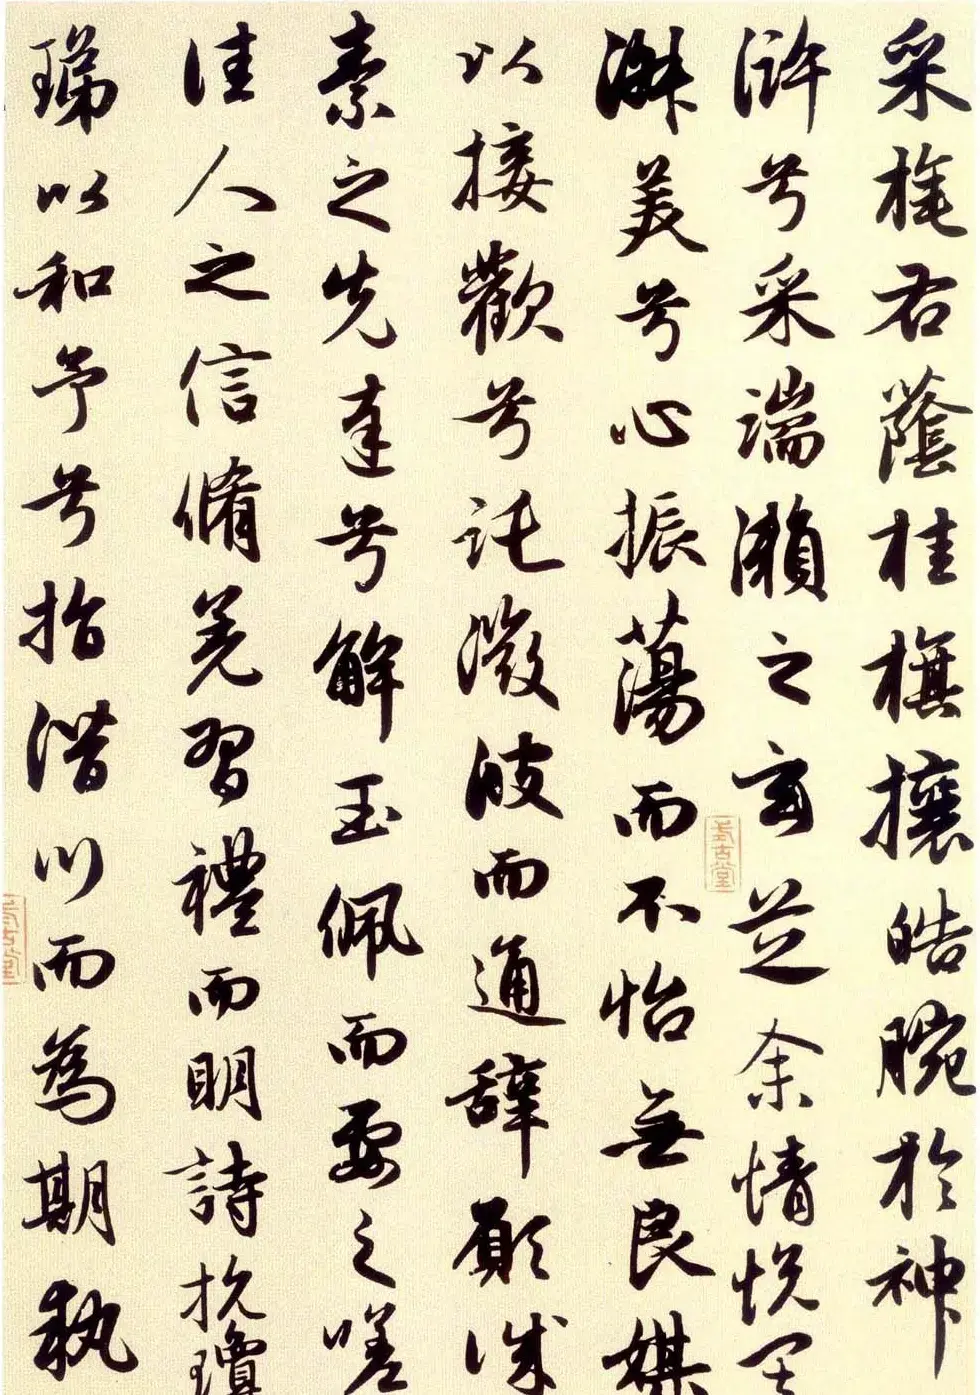 采旄右蔭桂旗攘皓腕於神
滸兮采湍瀨之玄芝余情悦其
淑美兮心振蕩而不怡無良媒
以接歡兮託微波而通辭願誠
素之先達兮解玉佩而要之嗟
佳人之信脩羌習禮而明詩抗瓊
珶以和予兮指潛川而為期執
式古堂
式古堂